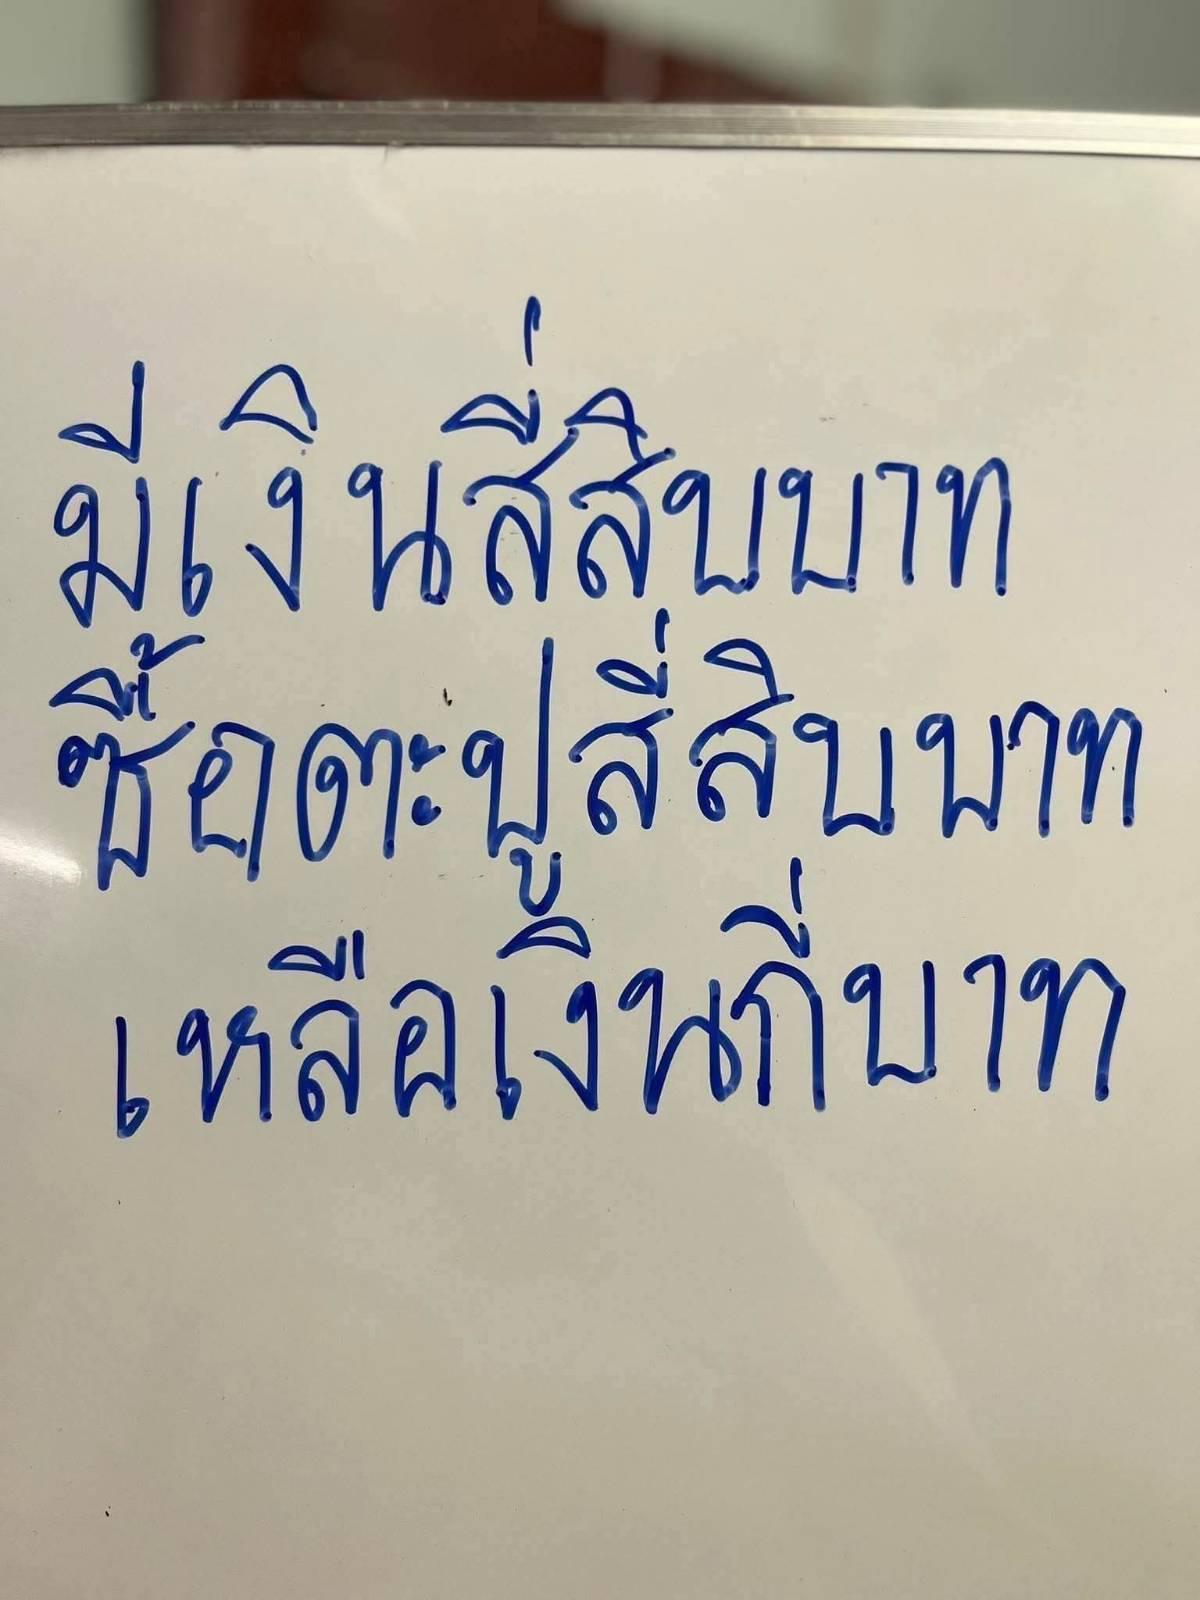 มีเงินสี่สิบบาท
ซื้อตะปูสี่สิบบาท
เหลือเงินกี่บาท